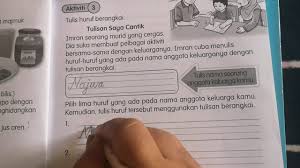 Aktiviti 3
Tulis huruf berangkai.
Tulisan Saya Cantik
Imran seorang murid yang cergas.
Dia suka membuat pelbagai aktiviti
bersama-sama dengan keluarganya. Imran cuba menulis
huruf-huruf yang ada pada nama anggota keluarga dengan
tulisan berangkai.
Najwa
Tulis nama seorang
anggota keluarga kamu.
Pilih lima huruf yang ada pada nama anggota keluarga kamu.
Kemudian, tulis huruf tersebut menggunakan tulisan berangkai.
1.
2.
bilis.)
dengan
jus aren.